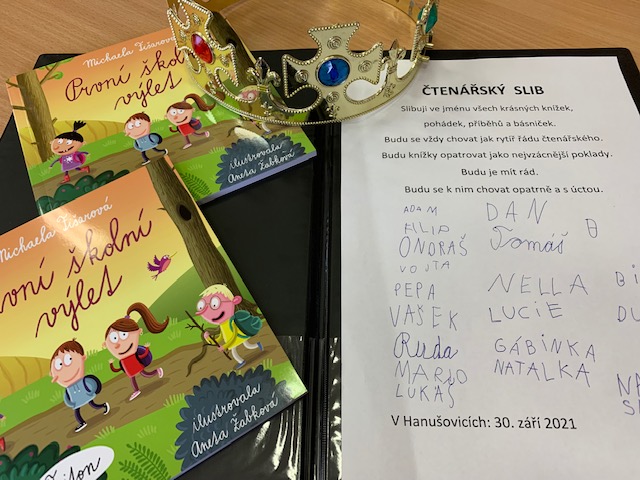 Michaela Fišarová
První školní
výlet
ilustrovala
Aneta Žabková
Michaela Fišarová
První školní
výlet
ilustrovala
Aneta Žabková
ČTENÁŘSKÝ SLIB
Slibuji ve jménu všech krásných knížek,
pohádek, příběhů a básniček.
Budu se vždy chovat jako rytíř řádu čtenářského.
Budu knížky opatrovat jako nejvzácnější poklady.
Budu je mít rád.
Budu se k nim chovat opatrně a s úctou.
ADAM
DAN
FILIP
ONDRAŠ
Tomáš
VOJTA
PEPA
NELLA
VAŠEK
LUCIE
Ruda
GÁBINKA
MARIO
NATALKA
LUKÁŠ
V Hanušovicích: 30. září 2021